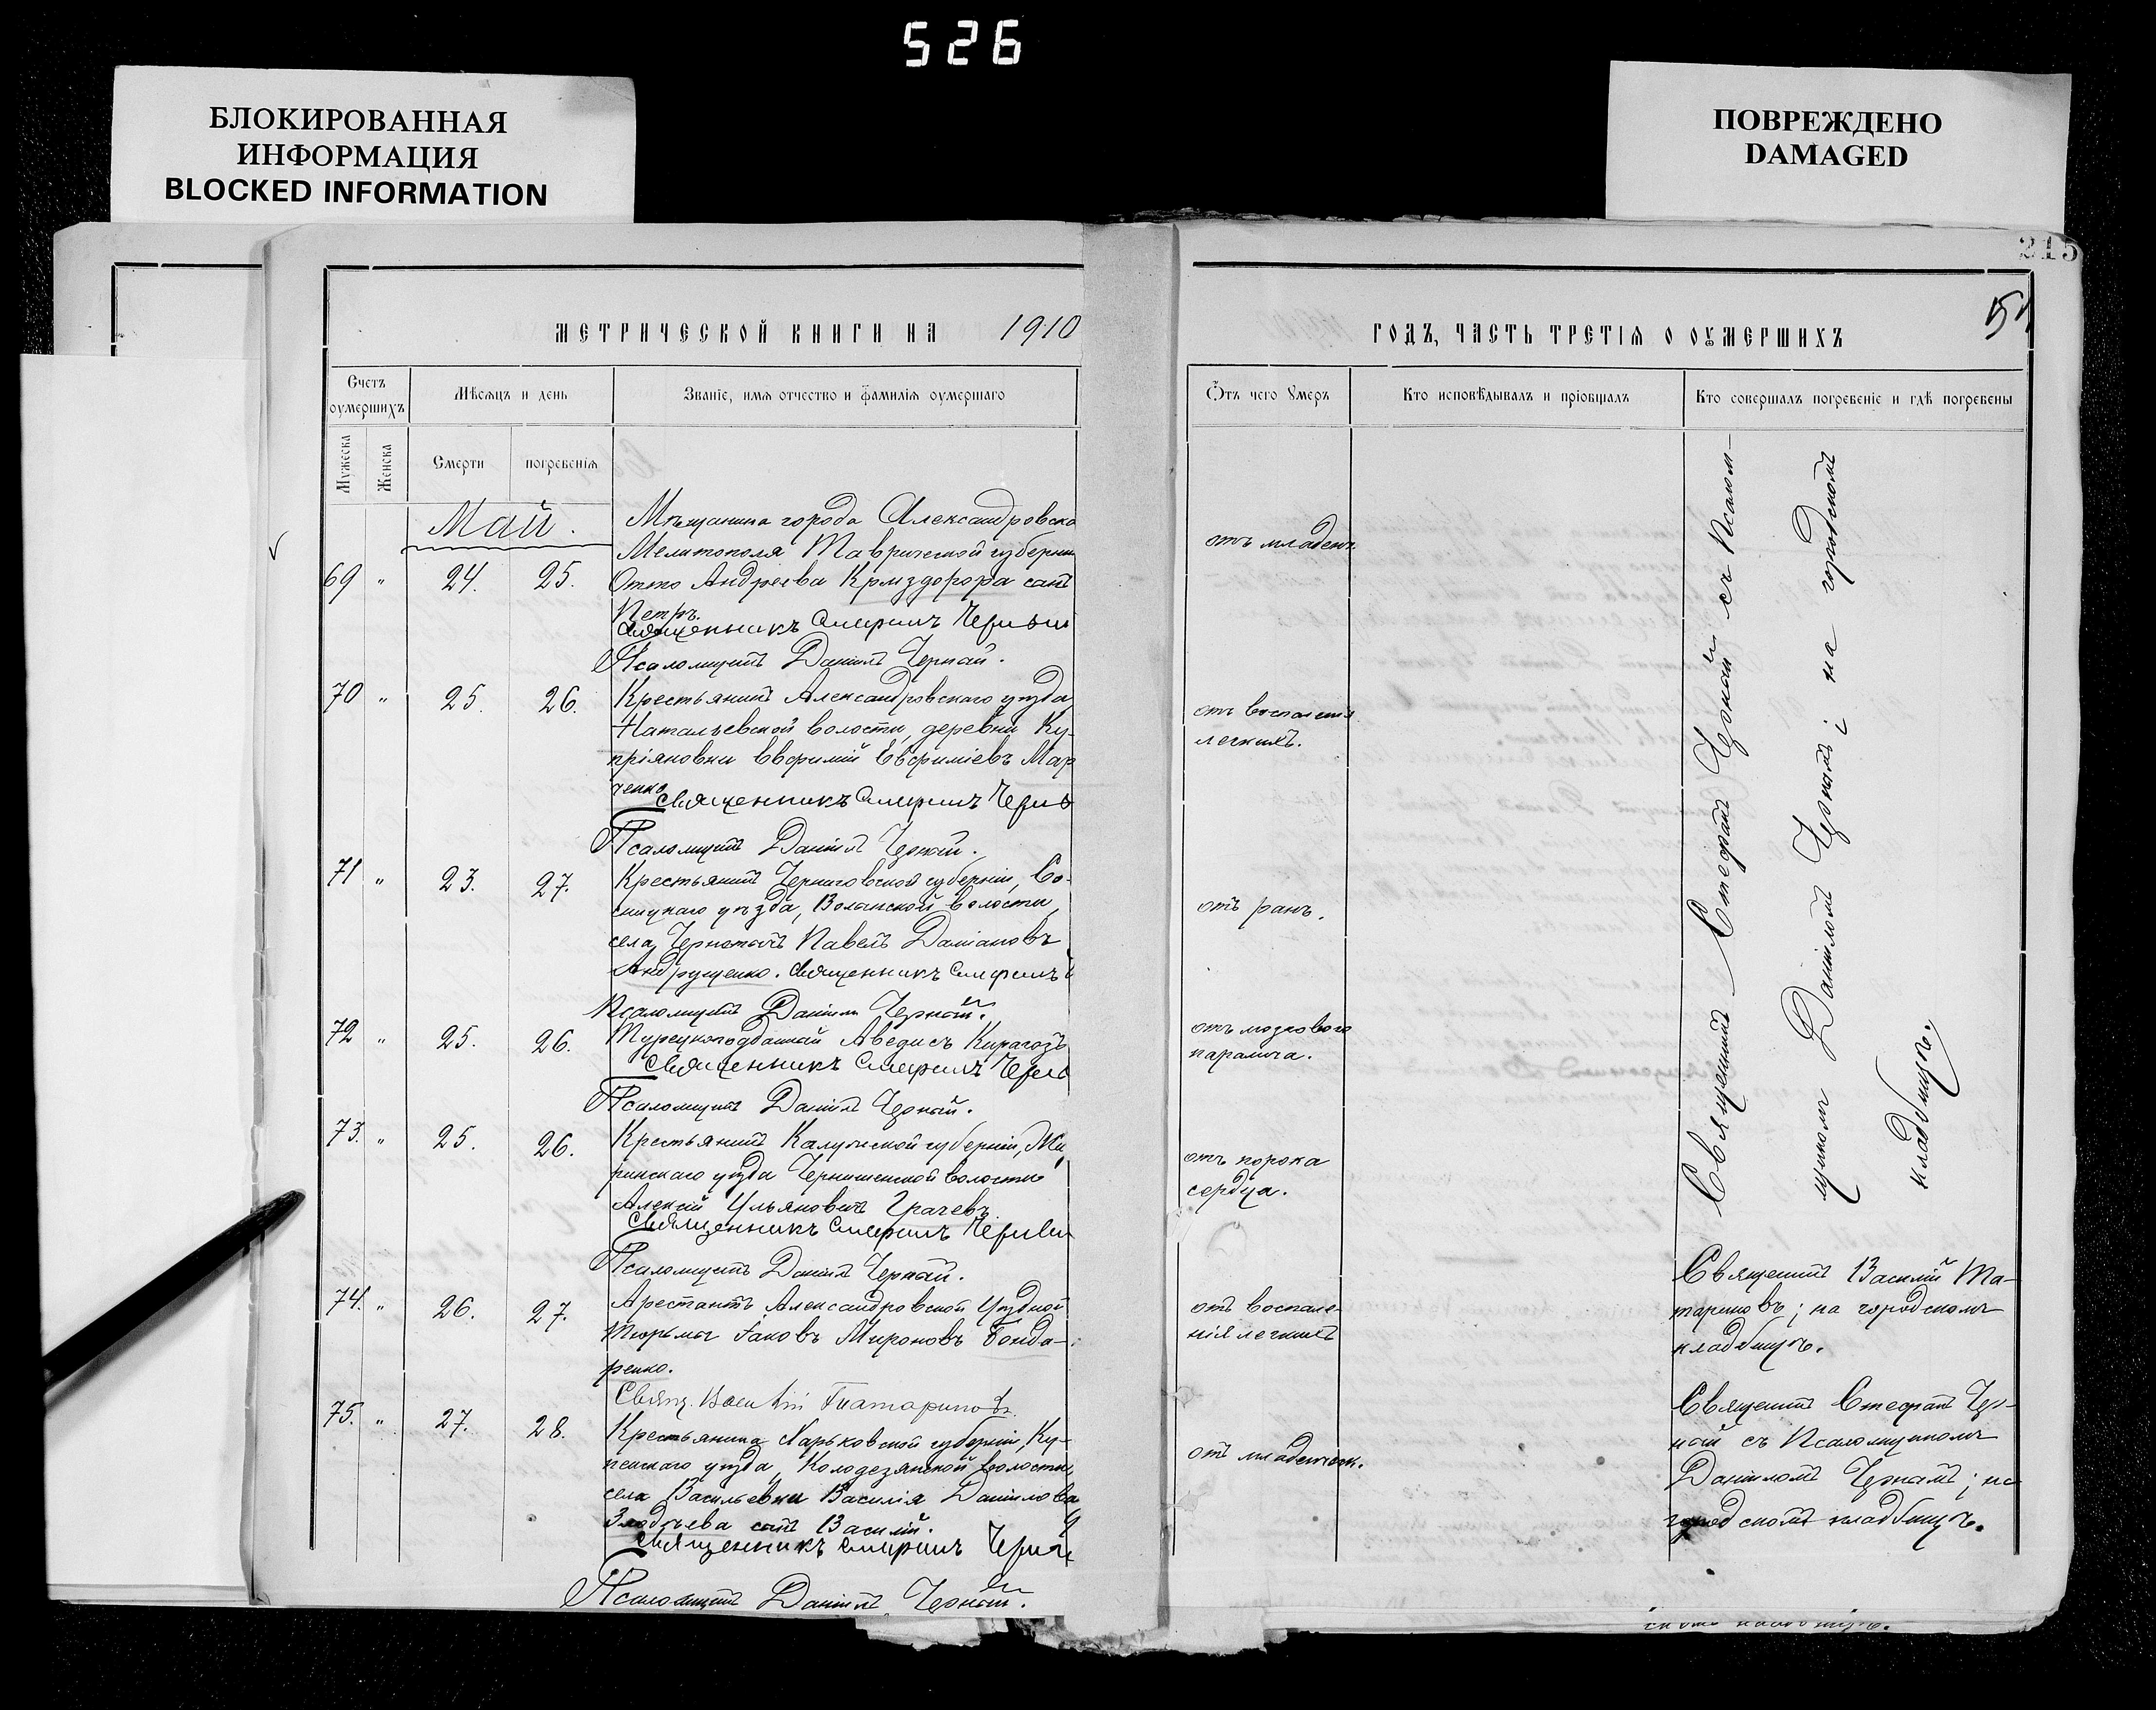 526
БЛОКИРОВАННАЯ
ИНФОРМАЦИЯ
BLOCKED INFORMATION
ПОВРЕЖДЕНО
DAMAGED
215
МЕТРИЧЕСКОЙ КНИГИ НА 1910
Счетъ
оумершихъ
Мѣсяцъ и день
Званіе, имя отчество и фамилія оумершаго
Мужеска
Женска
Смерти
погребенія
Май.
Мѣщанина города Александровска
Мелитополя Таврической губерніи
69 " 24. 25. Отто Андреева сынъ
Петръ.
Священникъ Стефанъ Черный
Псаломщикъ Даніилъ Черный.
70 " 25. 26. Крестьянинъ Александровскаго уѣзда
Натальевской волости, деревни Ку-
пріяновки Евфимій Евфиміевъ Мар
ченко
Священникъ Стефанъ Черно
Псаломщикъ Даніилъ Черный.
71 " 23. 27. Крестьянинъ Черниговской губерніи, Со-
сницкаго уѣзда, Волынской волости,
села Павелъ Даміановъ
Андрущенко. Священникъ Стефанъ
Псаломщикъ Даніилъ Черный.
72 " 25. 26. Турецкоподданный Аведисъ Кирагозъ
Священникъ Стефанъ Черно
Псаломщикъ Даніилъ Черный.
73. " 25. 26. Крестьянинъ Калужской губерніи, Жи
здринскаго уѣзда Чернышенской волости
Алексій Ульяновичъ Грачевъ.
Священникъ Стефанъ Черный
Псаломщикъ Даніилъ Черный.
74. " 26. 27. Арестантъ Александровской Уѣздной
тюрьмы Іаковъ Мироновъ Бонда-
ренко.
Свящ. Василій Татариновъ.
75. " 27. 28. Крестьянина Харьковской губерніи, Ку-
пенскаго уѣзда, Колодезянской волости,
села Васильевки Василія Данилова
сынъ Василій.
Священникъ Стефанъ Черны
Псаломщикъ Даніилъ Черный.
ГОДЪ, ЧАСТЬ ТРЕТІЯ О ОУМЕРШИХЪ
Отъ чего Умеръ
Кто исповѣдывалъ и пріобщалъ
Кто совершалъ погребеніе и гдѣ погребены
отъ младенч.
отъ воспаленія
легкихъ.
отъ ранъ.
отъ мозгового
паралича.
отъ порока
сердца.
отъ воспале-
нія легкихъ
отъ младенческ.
Священникъ Стефанъ Черный съ Псалом-
щикомъ Даніиломъ Чернымъ; на городскомъ
кладбищѣ.
Священникъ Василій Та-
тариновъ; на городскомъ
кладбищѣ.
Священникъ Стефанъ Чер-
ный съ Псаломщикомъ
Даніиломъ Чернымъ; на
городскомъ кладбищѣ.